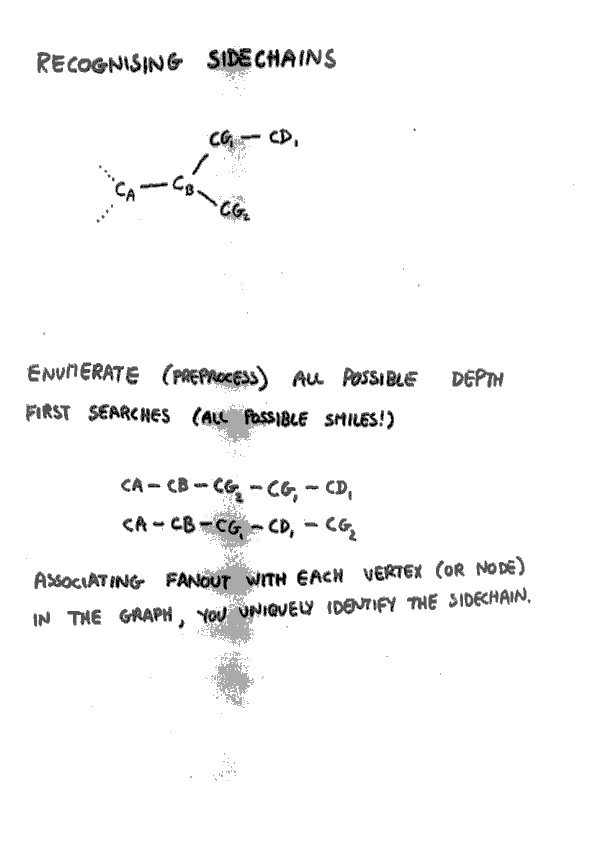 RECOGNISING SIDECHAINS
CG₁ — CD₁
CA — CB
CG₂
ENUMERATE (PREPROCESS) ALL POSSIBLE DEPTH
FIRST SEARCHES (ALL POSSIBLE SMILES!)
CA — CB — CG₂ — CG₁ — CD₁
CA — CB — CG₁ — CD₁ — CG₂
ASSOCIATING FANOUT WITH EACH VERTEX (OR NODE)
IN THE GRAPH, YOU UNIQUELY IDENTIFY THE SIDECHAIN.